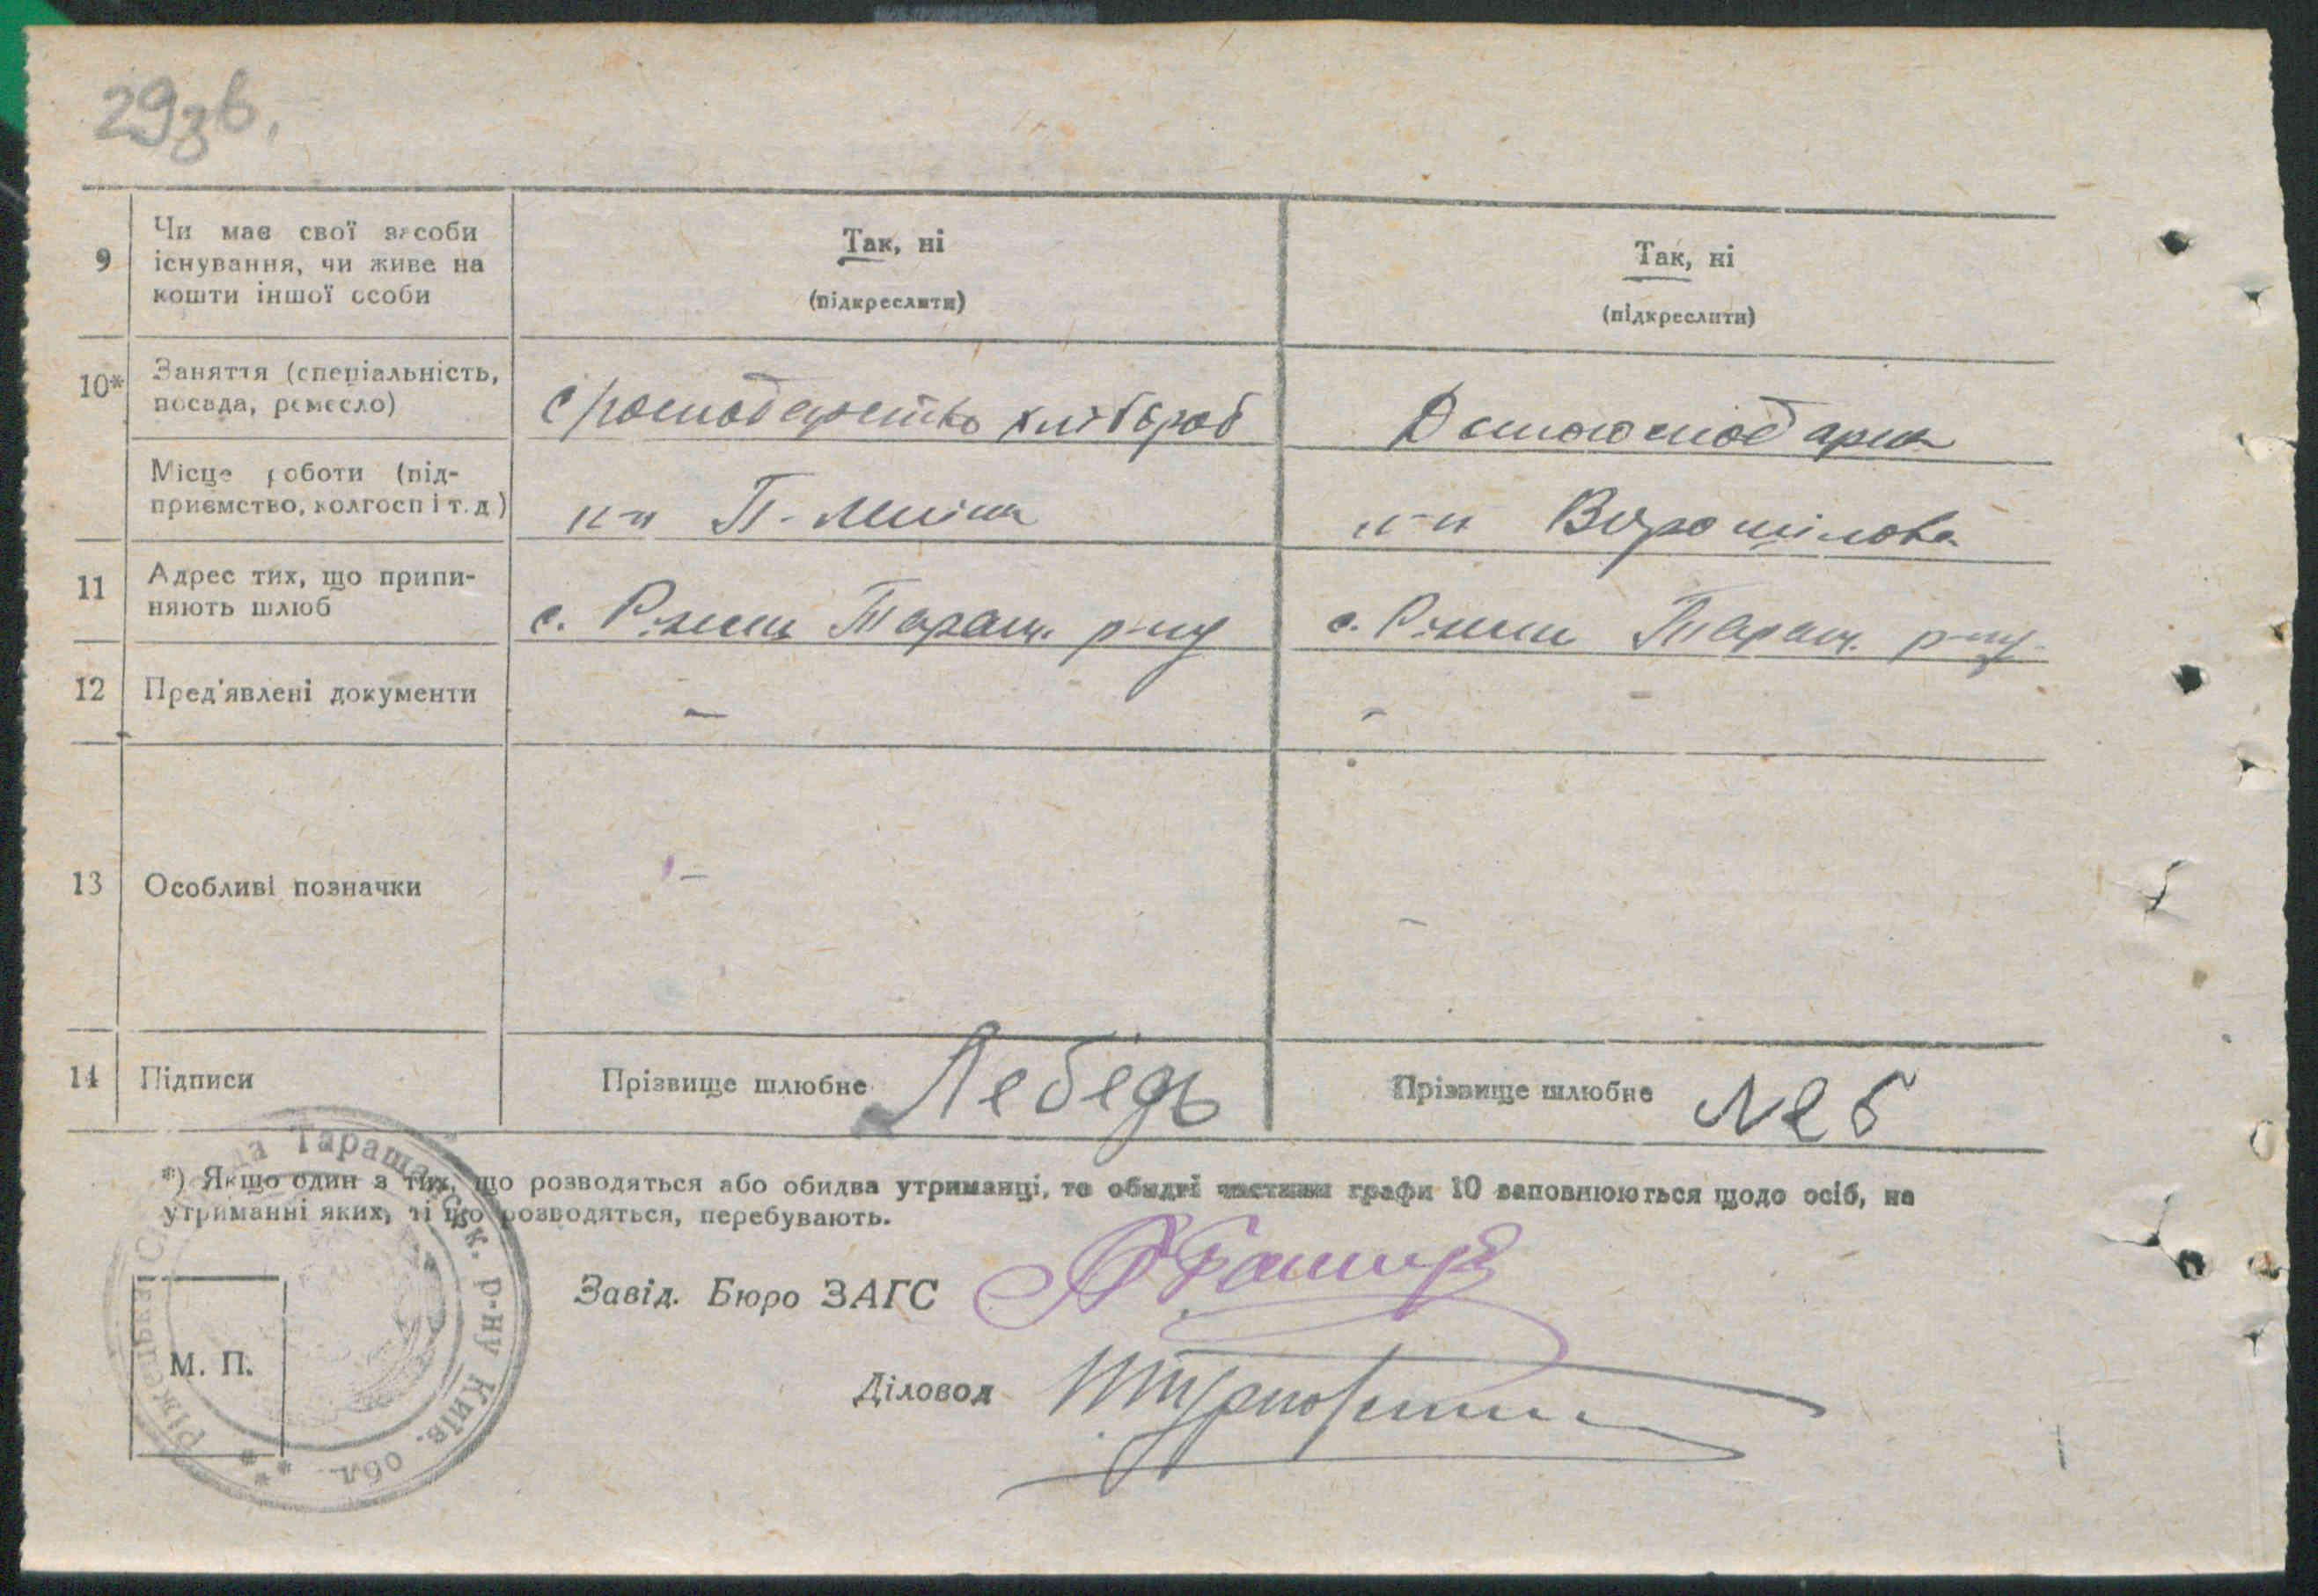 29зв.
9
Чи має свої засоби
існування, чи живе на
кошти іншої особи
Так, ні
(підкреслити)
Так, ні
(підкреслити)
10*
Заняття (спеціальність,
посада, ремесло)
хлібороб
Домогосподарка
Місце роботи (під-
приємство, колгосп і т. д.)
к-п
к-п Ворошілова
11
Адрес тих, що припи-
няють шлюб
с. Ріжки Таращ. р-ну
с. Ріжки Таращ. р-ну
12
Пред'явлені документи
-
-
13
Особливі позначки
-
-
14
Підписи
Прізвище шлюбне Лебедь
Прізвище шлюбне Леб
*) Якщо один з тих, що розводяться або обидва утриманці, то обидві частини графи 10 заповнюються щодо осіб, на
утриманні яких, ті що розводяться, перебувають.
Завід. Бюро ЗАГС
Діловод
М. П.
Таращанськ. р-ну Київ. обл.